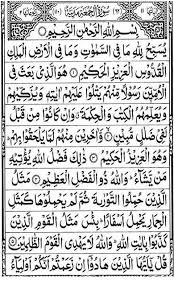 سُوْرَةُ الْجُمُعَةِ مَدَنِيَّةٌ
بِسْمِ اللهِ الرَّحْمٰنِ الرَّحِيْمِ
يُسَبِّحُ لِلّٰهِ مَا فِي السَّمٰوٰتِ وَمَا فِي الْاَرْضِ الْمَلِكِ
الْقُدُّوْسِ الْعَزِيْزِ الْحَكِيْمِ ۝ هُوَ الَّذِيْ بَعَثَ فِي
الْاُمِّيّٖنَ رَسُوْلًا مِّنْهُمْ يَتْلُوْا عَلَيْهِمْ اٰيٰتِهٖ وَيُزَكِّيْهِمْ
وَيُعَلِّمُهُمُ الْكِتٰبَ وَالْحِكْمَةَ وَاِنْ كَانُوْا مِنْ قَبْلُ
لَفِيْ ضَلٰلٍ مُّبِيْنٍ ۝ وَّاٰخَرِيْنَ مِنْهُمْ لَمَّا يَلْحَقُوْا بِهِمْ
وَهُوَ الْعَزِيْزُ الْحَكِيْمُ ۝ ذٰلِكَ فَضْلُ اللهِ يُؤْتِيْهِ
مَنْ يَّشَآءُ وَاللهُ ذُو الْفَضْلِ الْعَظِيْمِ ۝ مَثَلُ
الَّذِيْنَ حُمِّلُوا التَّوْرٰىةَ ثُمَّ لَمْ يَحْمِلُوْهَا كَمَثَلِ
الْحِمَارِ يَحْمِلُ اَسْفَارًا بِئْسَ مَثَلُ الْقَوْمِ الَّذِيْنَ
كَذَّبُوْا بِاٰيٰتِ اللهِ وَاللهُ لَا يَهْدِي الْقَوْمَ الظّٰلِمِيْنَ ۝
قُلْ يٰٓاَيُّهَا الَّذِيْنَ هَادُوْٓا اِنْ زَعَمْتُمْ اَنَّكُمْ اَوْلِيَآءُ